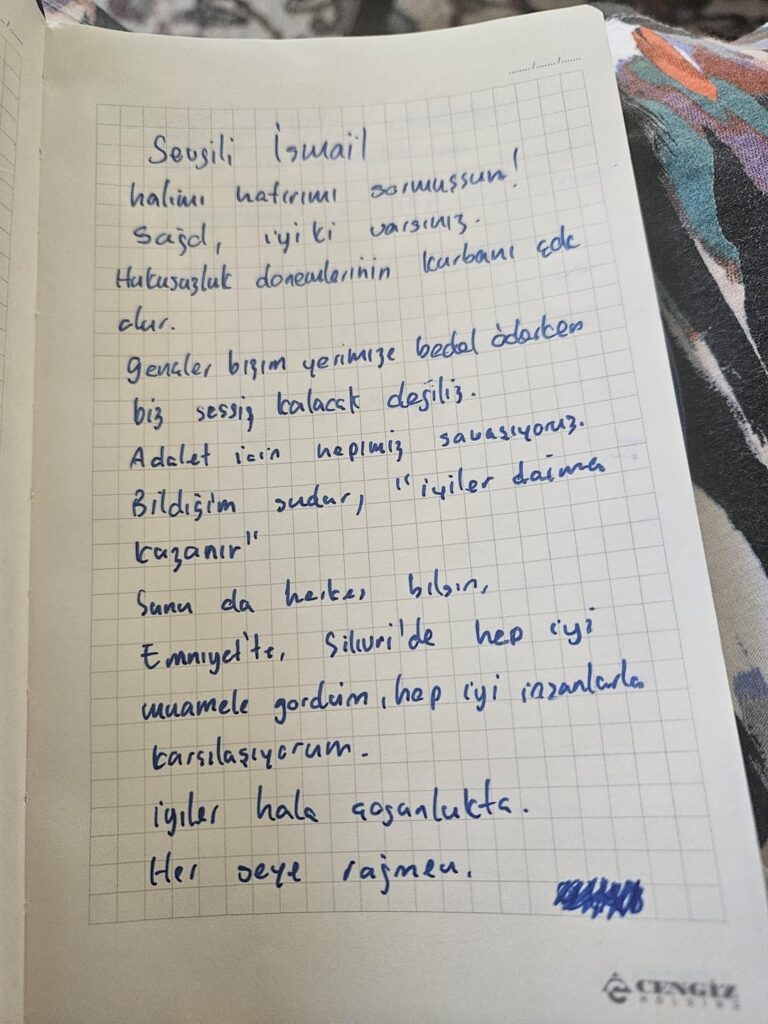 ....../....../......
Sevgili İsmail
halımı hatırımı sormuşsun!
Sağol, iyi ki varsınız.
Hukusuzluk donemlerinin kurbanı çok
olur.
gençler bizim yerimize bedel öderken
biz sessiz kalacak değiliz.
Adalet için hepimiz savaşıyoruz.
Bildiğim şudur, "iyiler daima
kazanır"
Şunu da herkes bilsin,
Emniyet'te, Silivri'de hep iyi
muamele gordüm, hep iyi insanlarla
karşılaşıyorum.
iyiler hala çoğunlukta.
Her şeye rağmen.
CENGİZ
HOLDİNG